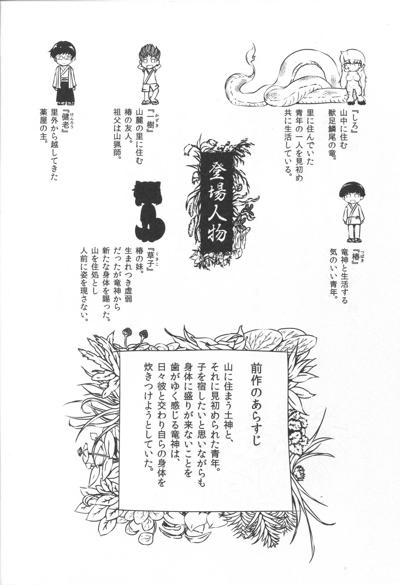 登場人物
『しろ』
山中に住む
獣足鱗尾の竜。
里に住んでいた
青年の一人を見初め
共に生活している。
『椿』つばき
竜神と生活する
気のいい青年。
『一樹』かずき
山麓の里に住む
椿の友人。
祖父は山猟師。
『草子』くさこ
椿の妹。
生まれつき虚弱
だったが竜神から
新たな身体を賜った。
山を住処とし
人前に姿を現さない。
『健老』けんろう
里外から越してきた
薬屋の主。
前作のあらすじ
山に住まう土神と、
それに見初められた青年。
子を宿したいと思いながらも
身体に盛りが来ないことを
歯がゆく感じる竜神は、
日々彼と交わり自らの身体を
炊きつけようとしていた。